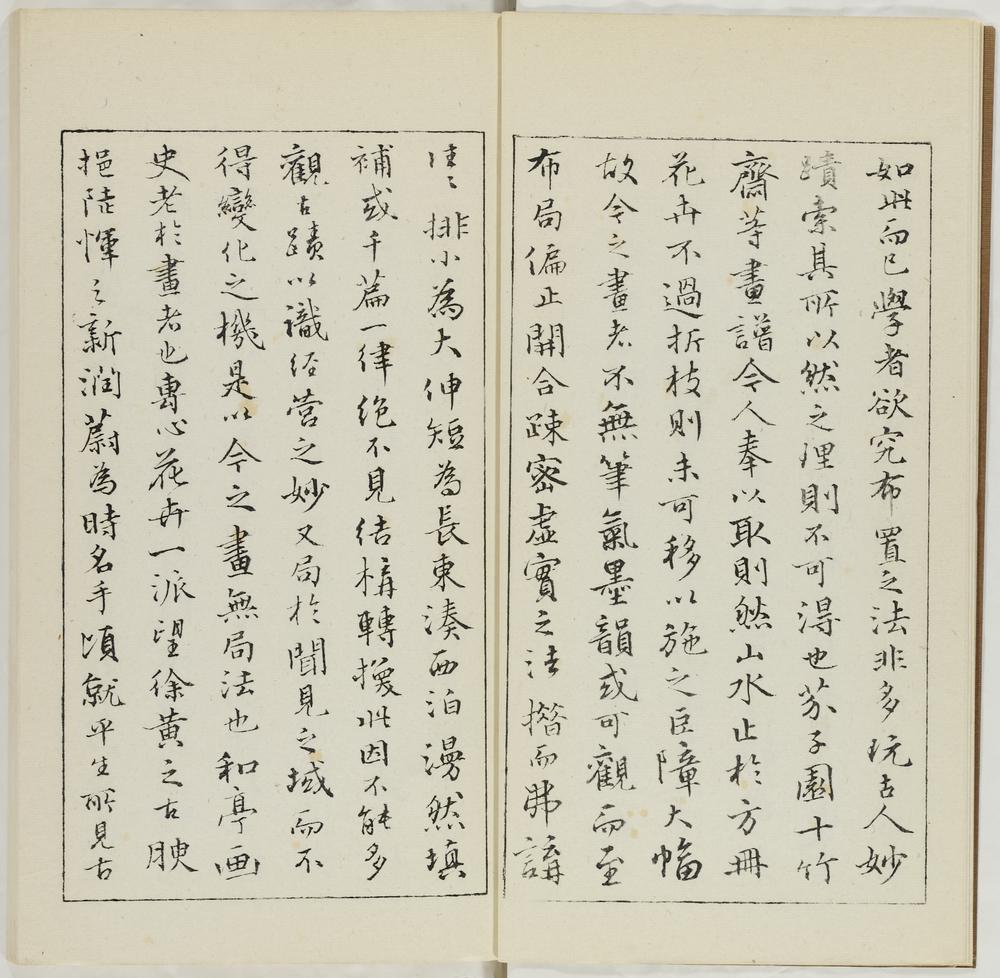 如此而已學者欲究布置之法非多玩古人妙
蹟索其所以然之理則不可得也芥子園十竹
齋等畫譜今人奉以取則然山水止於方冊
花卉不過折枝則未可移以施之巨障大幅
故今之畫者不無筆氣墨韻或可觀而至
布局偏止開合疎密虛實之法揩而弗講
往々排小為大伸短為長東湊西泊漫然填
補或千篇一律絕不見結構轉換此因不能多
觀古蹟以識經營之妙又局於聞見之域而不
得變化之機是以今之畫無局法也和亭画
史老於畫者也專心花卉一派望徐黃之古腴
挹陸惲之新潤蔚為時名手頃就平生所見古